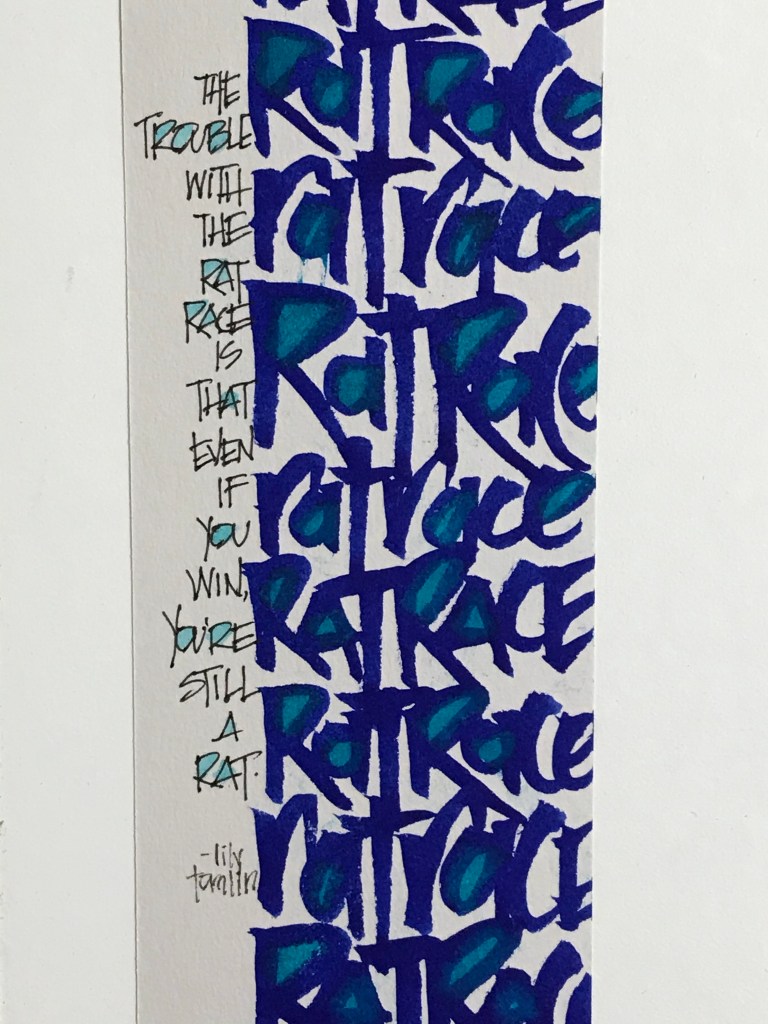 THE
TROUBLE
WITH
THE
RAT
RACE
IS
THAT
EVEN
IF
YOU
WIN,
YOU'RE
STILL
A
RAT.
-lily
tomlin
RATRACE
RaTRace
raTrace
RaTRace
raTrace
RATRACE
RaTRace
raTrace
RaTRace